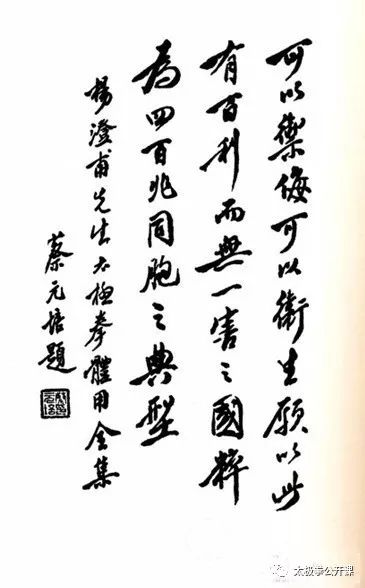 可以禦侮可以衛生願以此
有百利而無一害之國粹
為四百兆同胞之典型
楊澄甫先生太極拳體用全集
蔡元培題
太极拳公开课